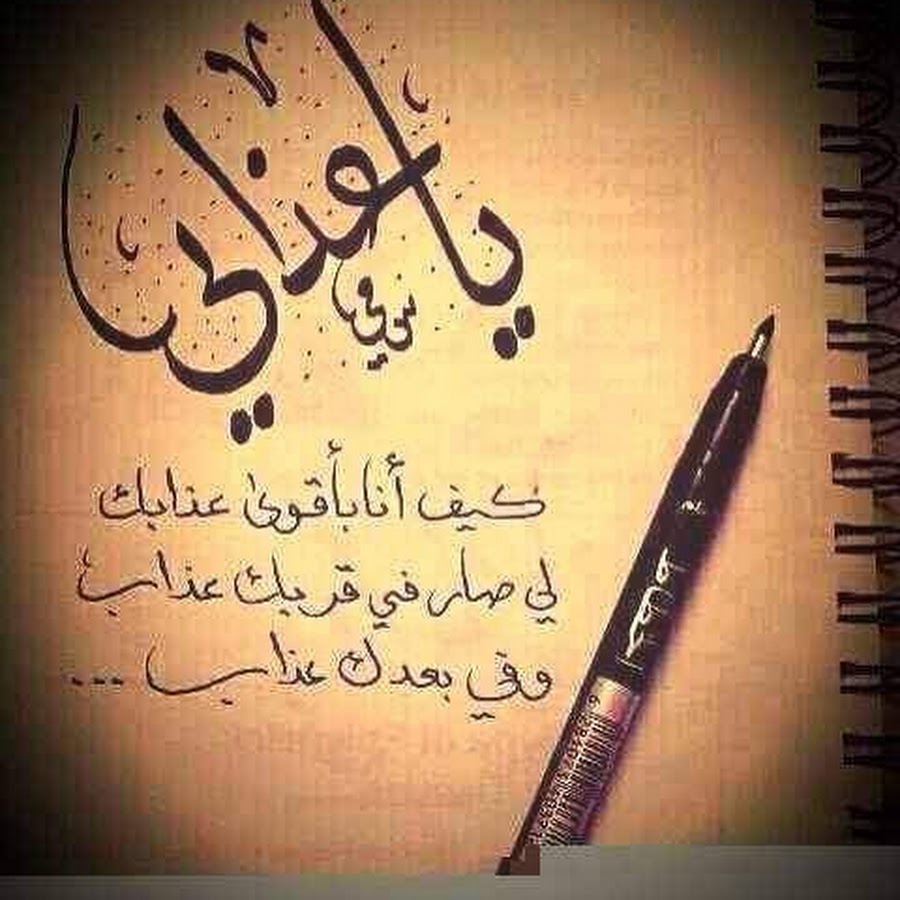 يا عذابي
كيف أنا بأقوىٰ عذابك
لي صار في قربك عذاب
وفي بعدك عذاب ...
الخطاط